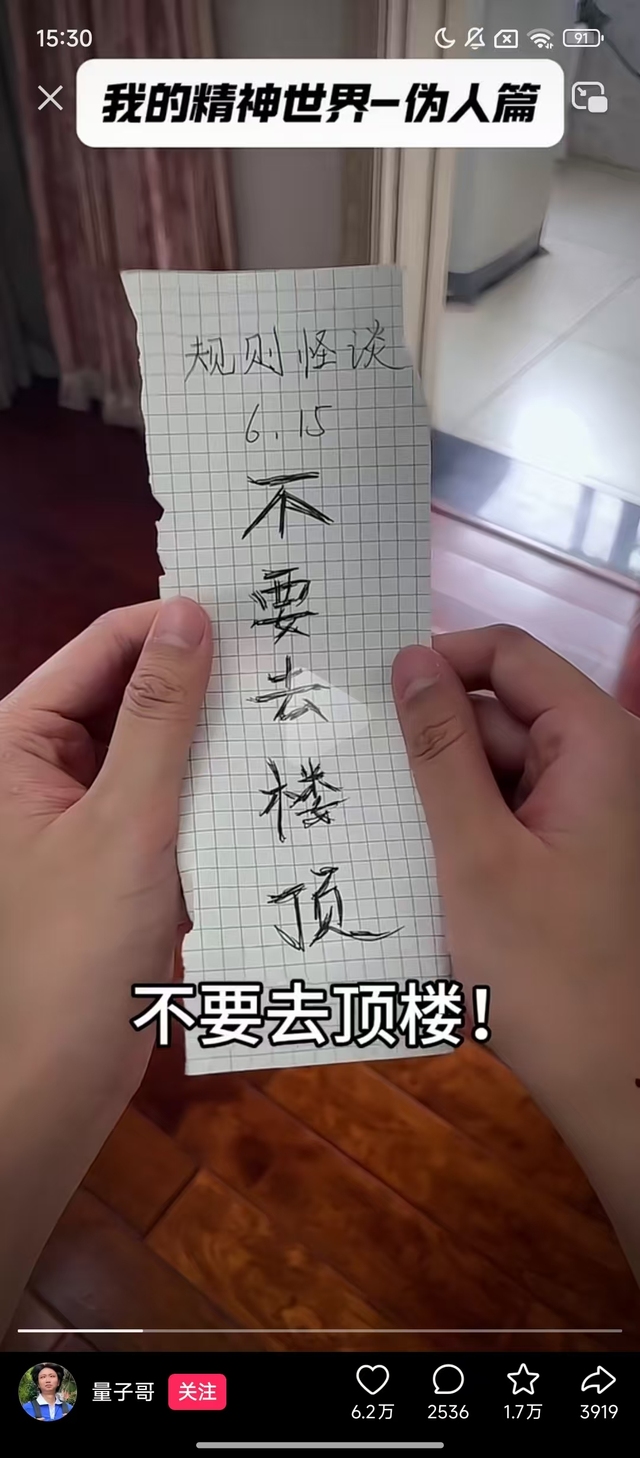 15:30
91
我的精神世界-伪人篇
规则怪谈
6.15
不
要
去
楼
顶
不要去顶楼！
量子哥
关注
6.2万
2536
1.7万
3919